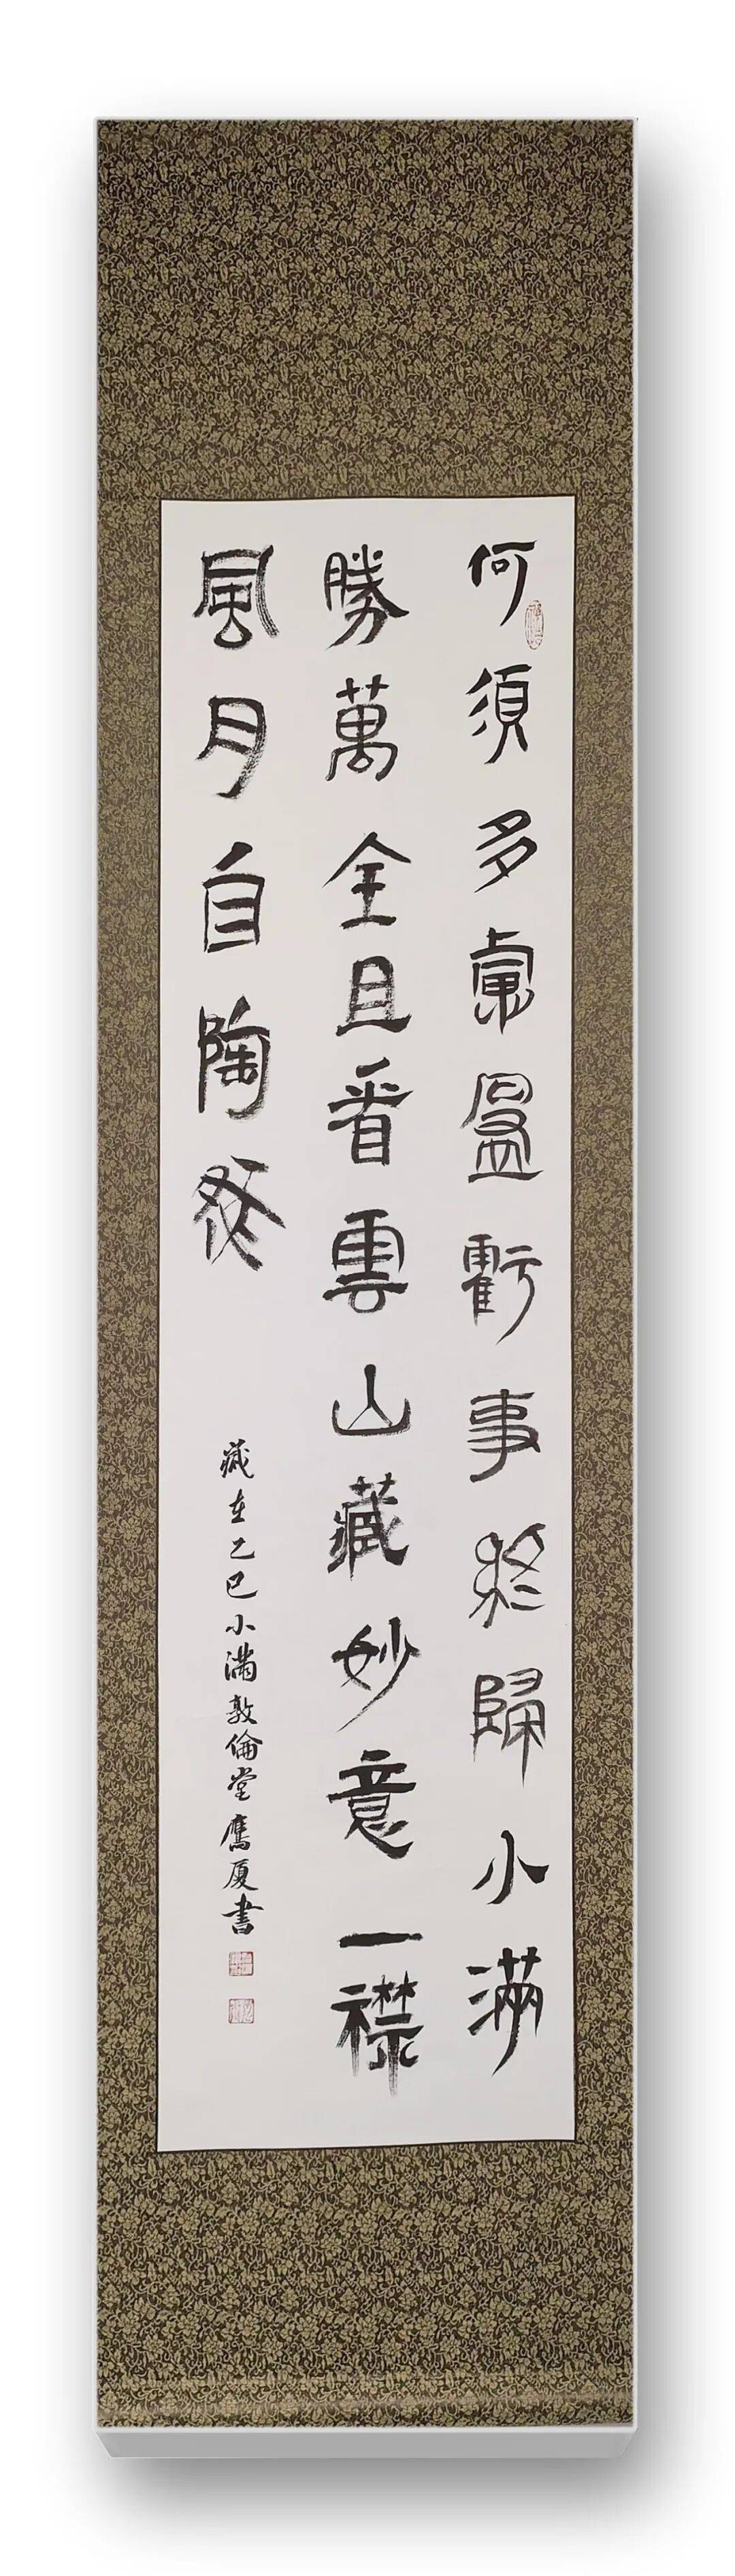 何須多慮盈虧事終歸小滿
勝萬全且看雲山藏妙意一襟
風月自陶然
歲在乙巳小滿敦倫堂鷹厦書